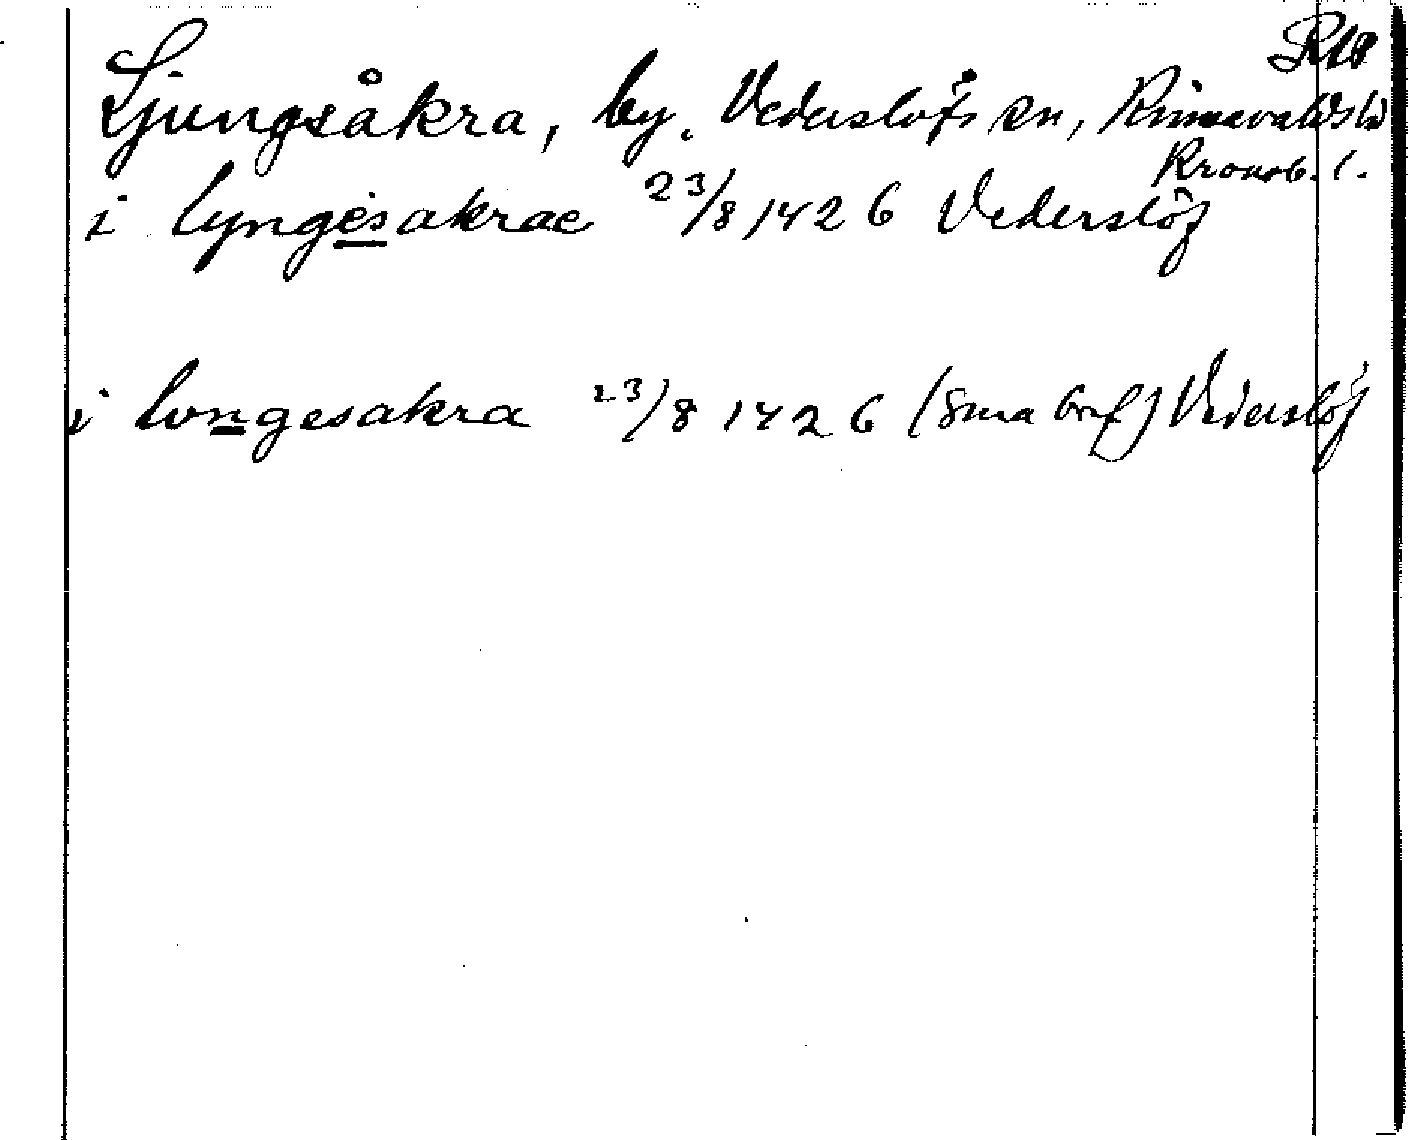 Ljungsåkra, by. Vederslöfs sn, Kinnevalds hd
Kronob. l.
i lyngesakrae 23/8 1426 Vederslöf
i longesakra 23/8 1426 (Sma bref) Vederslöf